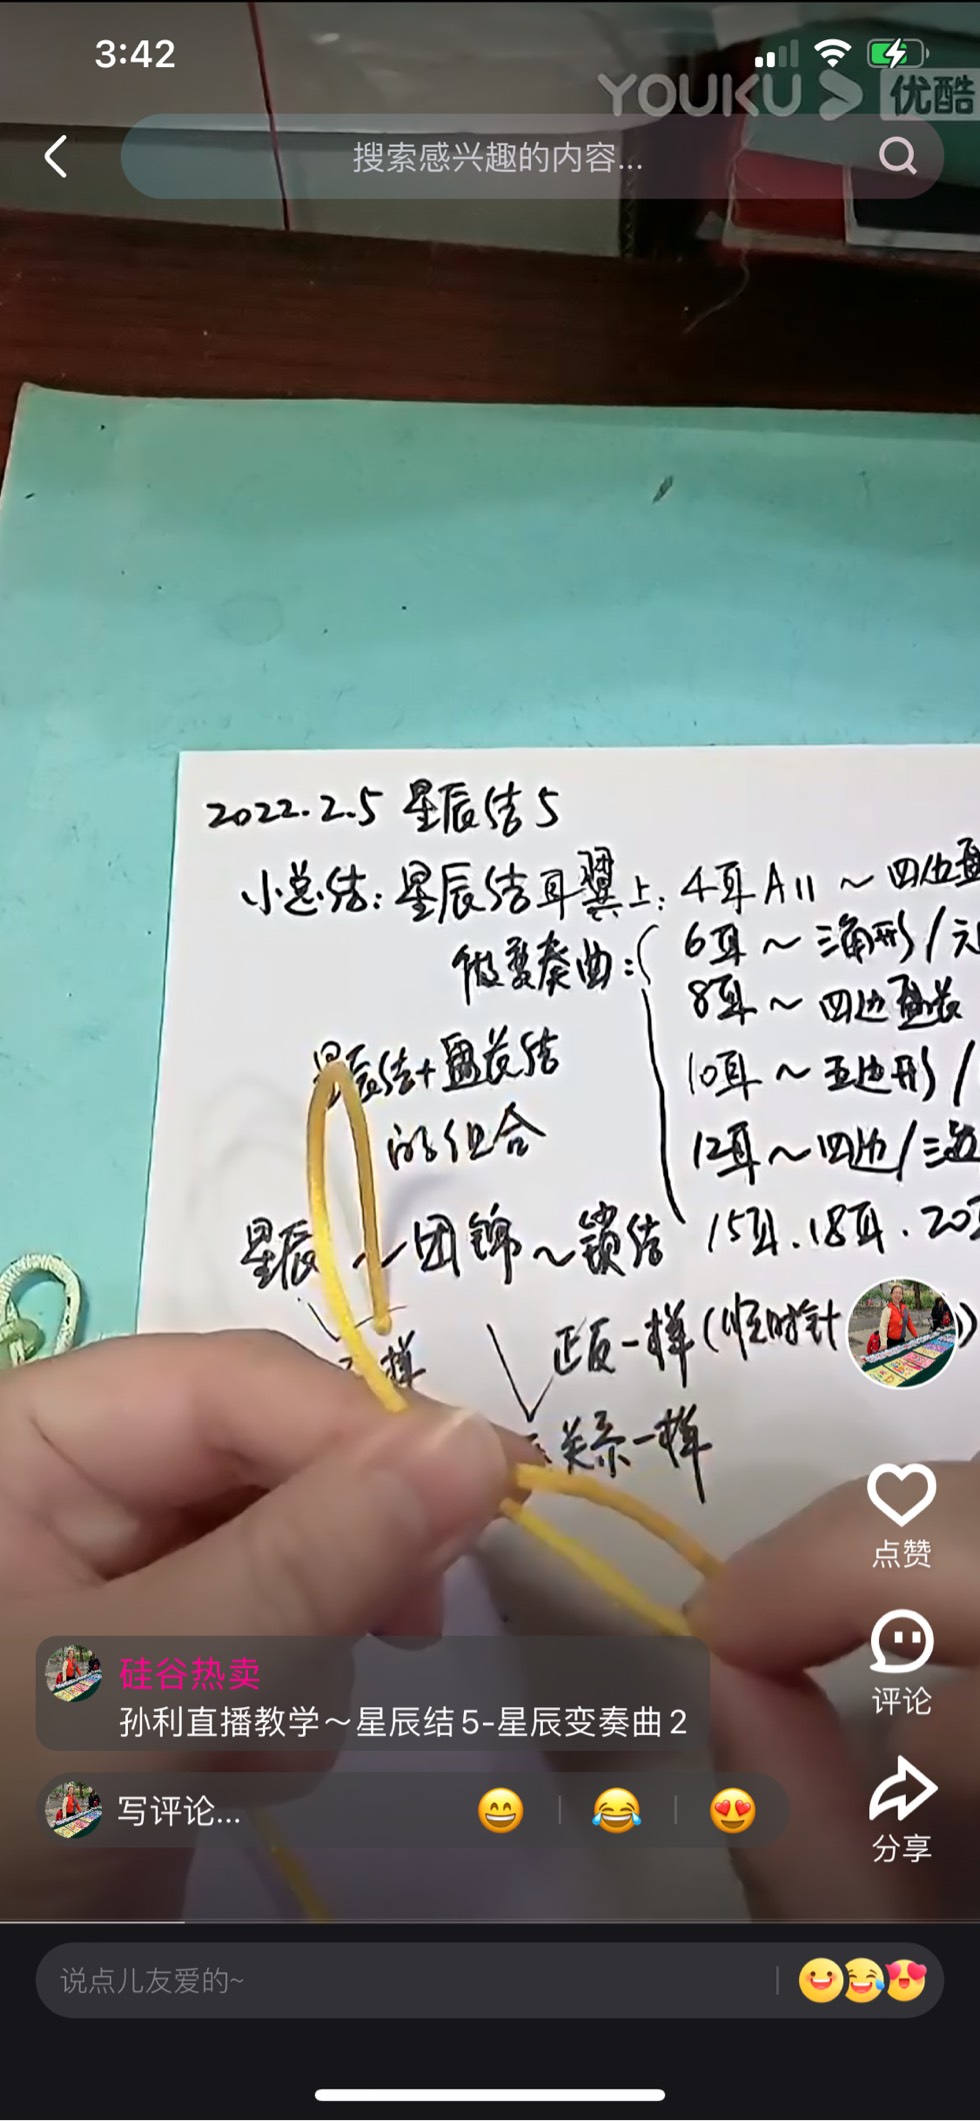 3:42
YOUKU 优酷
搜索感兴趣的内容...
2022.2.5 星辰结5
小总结:星辰结耳翼上:4耳A11～四边盘
做变奏曲:
6耳～三角形/元
8耳～四边盘长
10耳～五边形/
12耳～四边/三
星辰结+盘长结
的组合
星辰～团锦～锁结
15耳.18耳.20
样
正反一样(顺时针
关系一样
点赞
硅谷热卖
孙利直播教学～星辰结5-星辰变奏曲2
评论
写评论...
分享
说点儿友爱的~